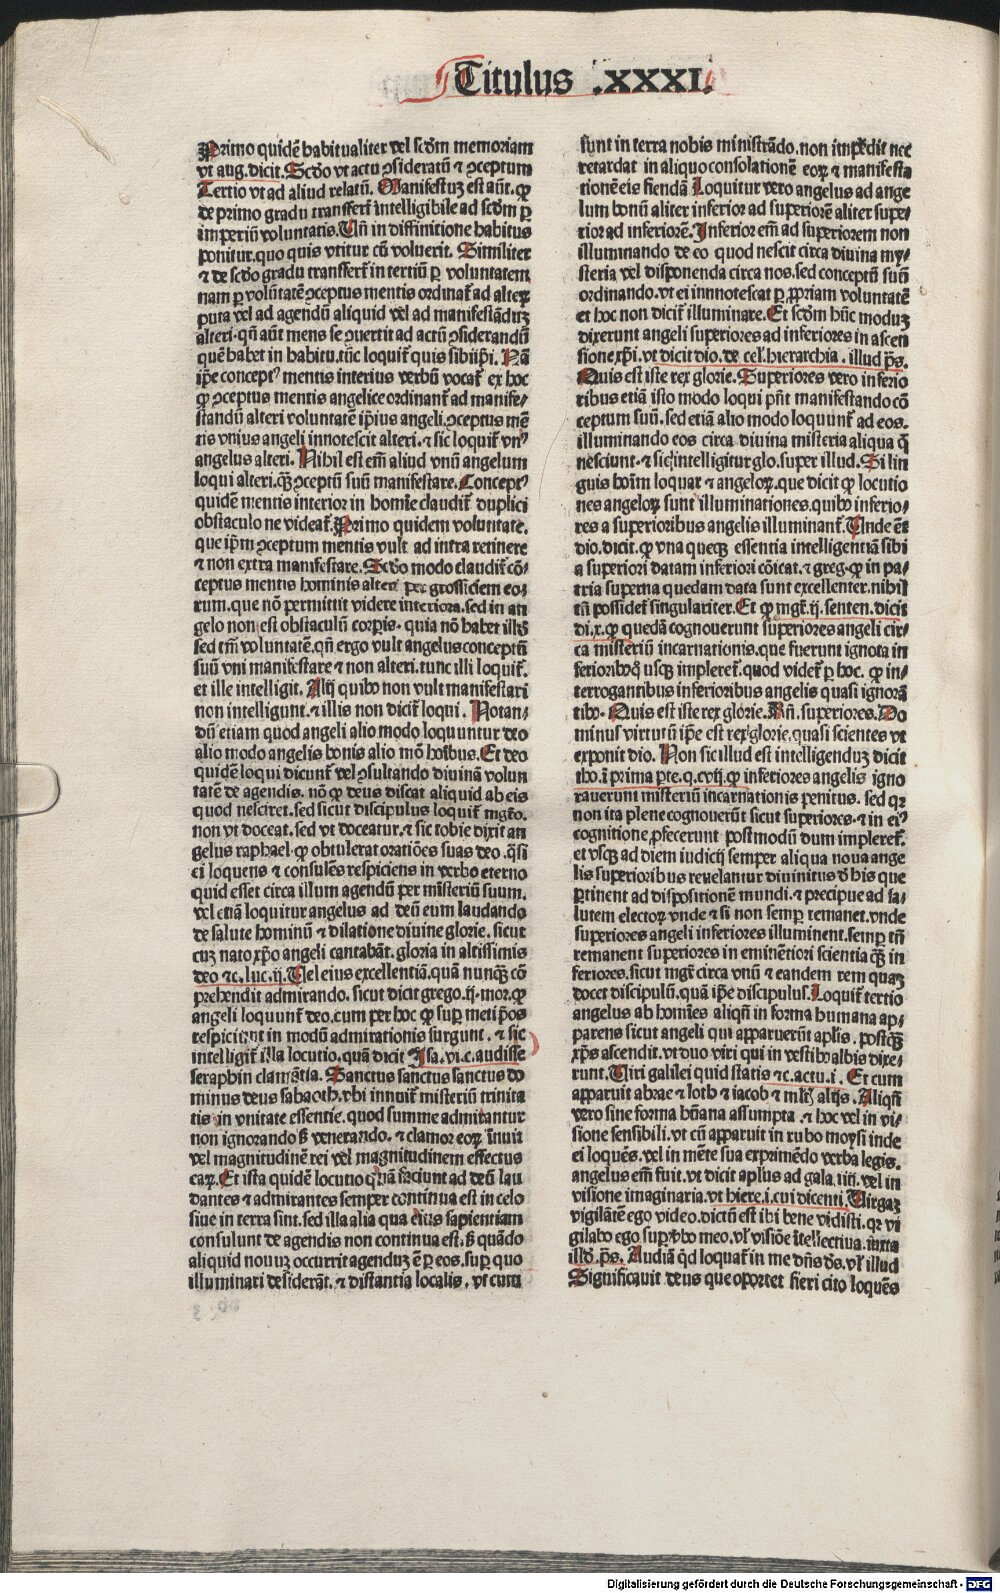 Titulus .XXXI.
Primo quidē habitualiter vel scd̄m memoriam
vt aug. dicit. Scd̄o vt actu ꝯsideratū & ꝯceptum
Tertio vt ad aliud relatū. Manifestuꝫ est aūt. ꝙ
de primo gradu transfert̄ intelligibile ad scd̄m ꝑ
imperiū voluntatis. Un̄ in diffinitione habitus
ponitur. quo quis vtitur cū voluerit. Similiter
& de scd̄o gradu transfert̄ in tertiū ꝑ voluntatem
nam ꝑ volūtatē ꝯceptus mentis ordinat̄ ad alteꝝ
puta vel ad agendū aliquid vel ad manifestāduꝫ
alteri. qn̄ aūt mens se ꝯuertit ad actū ꝯsiderandū
quē habet in habitu. tūc loquit̄ quis sibiip̄i. Nā
ip̄e concept⁹ mentis interius verbū vocat̄ ex hoc
ꝙ ꝯceptus mentis angelice ordinant̄ ad manife-
standū alteri voluntatē ip̄ius angeli. ꝯceptus mē
tis vnius angeli innotescit alteri. & sic loquit̄ vn⁹
angelus alteri. Nihil est em̄ aliud vnū angelum
loqui alteri. qꝫ ꝯceptū suū manifestare. Concept⁹
quidē mentis interior in homīe claudit̄ duplici
obstaculo ne videat̄. Primo quidem voluntate.
que ip̄m ꝯceptum mentis vult ad intra retinere
& non extra manifestare. Scd̄o modo claudit̄ cō-
ceptus mentis hominis alteri per grossiciem eo-
rum. que nō permittit videre interiora. sed in an
gelo non est obstaculū corpis. quia nō habet illud
sed tm̄ voluntatē. qn̄ ergo vult angelus conceptū
suū vni manifestare & non alteri. tunc illi loquit̄.
et ille intelligit. Alij quibꝰ non vult manifestari
non intelligunt. & illis non dicit̄ loqui. Notan-
dū etiam quod angeli alio modo loquuntur deo
alio modo angelis bonis alio mō hoībus. Et deo
quidē loqui dicunt̄ vel ꝯsultando diuinā volun
tatē de agendis. nō ꝙ deus discat aliquid ab eis
quod nesciret. sed sicut discipulus loquit̄ mgr̄o.
non vt doceat. sed vt doceatur. & sic tobie dixit an
gelus raphael. ꝙ obtulerat oratiōes suas deo. q̄si
ei loquens & consulēs respiciens in verbo eterno
quid esset circa illum agendū per misteriū suum.
vel etiā loquitur angelus ad deū eum laudando
de salute hominū & dilatione diuine glorie. sicut
cuꝫ nato xp̄o angeli cantabāt. gloria in altissimis
deo &c. luc. ij. Uel eius excellentiā. quā nunqꝫ cō
prehendit admirando. sicut dicit grego. ij. mor. ꝙ
angeli loquunt̄ deo. cum per hoc ꝙ suꝑ metip̄os
respiciunt in modū admirationis surgunt. & sic
intelligit̄ illa locutio. quā dicit Isa. vi. c. audisse
seraphin clamātia. Sanctus sanctus sanctus do
minus deus sabaoth. vbi innuit̄ misteriū trinita
tis in vnitate essentie. quod summe admirantur
non ignorando sꝫ venerando. & clamor eoꝝ innuit
vel magnitudinē rei vel magnitudinem effectus
eaꝝ. Et ista quidē locutio quā faciunt ad deū lau
dantes & admirantes semper continua est in celo
siue in terra sint. sed illa alia qua eius sapientiam
consulunt de agendis non continua est. sꝫ quādo
aliquid nouuꝫ occurrit agenduꝫ ē ꝑ eos. suꝑ quo
illuminari desiderāt. & distantia localis. vt cum
sunt in terra nobis ministrādo. non impedit nec
retardat in aliquo consolationē eoꝝ & manifesta
tionē eis fiendā. Loquitur vero angelus ad ange
lum bonū aliter inferior ad superiorē aliter supe-
rior ad inferiorē. Inferior em̄ ad superiorem non
illuminando de eo quod nescit circa diuina my-
steria vel disponenda circa nos. sed conceptū suū
ordinando. vt ei innnotescat ꝑ ꝓpriam voluntatē
et hoc non dicit̄ illuminare. Et scd̄m hūc moduꝫ
dixerunt angeli superiores ad inferiores in ascen
sione xp̄i. vt dicit dio. de cel. hierarchia. illud p̄s.
Quis est iste rex glorie. Superiores vero inferio
ribus etiā isto modo loqui pn̄t manifestando cō
ceptum suū. sed etiā alio modo loquunt̄ ad eos.
illuminando eos circa diuina misteria aliqua q̄
nesciunt. & sic intelligitur glo. super illud. Si lin
guis hoīm loquar & angeloꝝ. que dicit ꝙ locutio
nes angeloꝝ sunt illuminationes. quibꝰ inferio-
res a superioribus angelis illuminant̄. Unde ēt
dio. dicit. ꝙ vna queqꝫ essentia intelligentiā sibi
a superiori datam inferiori cōicat. & greg. ꝙ in pa-
tria superna quedam data sunt excellenter. nihil
tn̄ possidet̄ singulariter. Et ꝙ mgr̄. ij. senten. dicit
di. x. ꝙ quedā cognouerunt superiores angeli cir-
ca misteriū incarnationis. que fuerunt ignota in
ferioribꝰ vsqꝫ impleret̄. quod videt̄ ꝑ hoc. ꝙ in-
terrogantibus inferioribus angelis quasi ignorā
tibꝰ. Quis est iste rex glorie. Rn̄. superiores. Do
minus virtutū ip̄e est rex glorie. quasi scientes vt
exponit dio. Non sic illud est intelligenduꝫ dicit
tho. ī prima ꝑte. q. cvij. ꝙ inferiores angelis igno
rauerunt misteriū incarnationis penitus. sed qꝛ
non ita plene cognouerūt sicut superiores. & in ei⁹
cognitione ꝓfecerunt postmodū dum impleret̄.
et vsqꝫ ad diem iudicij semper aliqua noua ange
lis superioribus reuelantur diuinitus d̄ his que
ꝑtinent ad dispositionē mundi. & precipue ad sa-
lutem electoꝝ vnde & si non semꝑ remanet. vnde
superiores angeli inferiores illuminent. semꝑ tn̄
remanent superiores in eminētiori scientia qꝫ in
feriores. sicut mgr̄ circa vnū & eandem rem quaꝫ
docet discipulū. quā ip̄e discipulus. Loquit̄ tertio
angelus ab homīes aliqn̄ in forma humana ap-
parens sicut angeli qui apparuerūt ap̄lis. postqꝫ
xp̄s ascendit. vt duo viri qui in vestibꝰ albis dixe-
runt. Uiri galilei quid statis &c. actu. i. Et cum
apparuit abrae & loth & iacob & mlt̄ alijs. Aliqn̄
vero sine forma hūana assumpta. & hoc vel in vi-
sione sensibili. vt cū apparuit in rubo moysi inde
ei loquēs. vel in mēte sua exprimēdo verba legis.
angelus em̄ fuit. vt dicit ap̄lus ad gala. iiī. vel in
visione imaginaria. vt hiere. i. cui dicenti. Uirgaꝫ
vigilātē ego video. dictū est ibi bene vidisti. qꝛ vi
gilabo ego suꝑ v̄bo meo. vl̄ visiōe ītellectiua. iuxta
illd̄. p̄s. Audiā qd̄ loquat̄ in me dn̄s d̄s. vl̄ illud
Significauit deus que oportet fieri cito loquēs
Digitalisierung gefördert durch die Deutsche Forschungsgemeinschaft - DFG